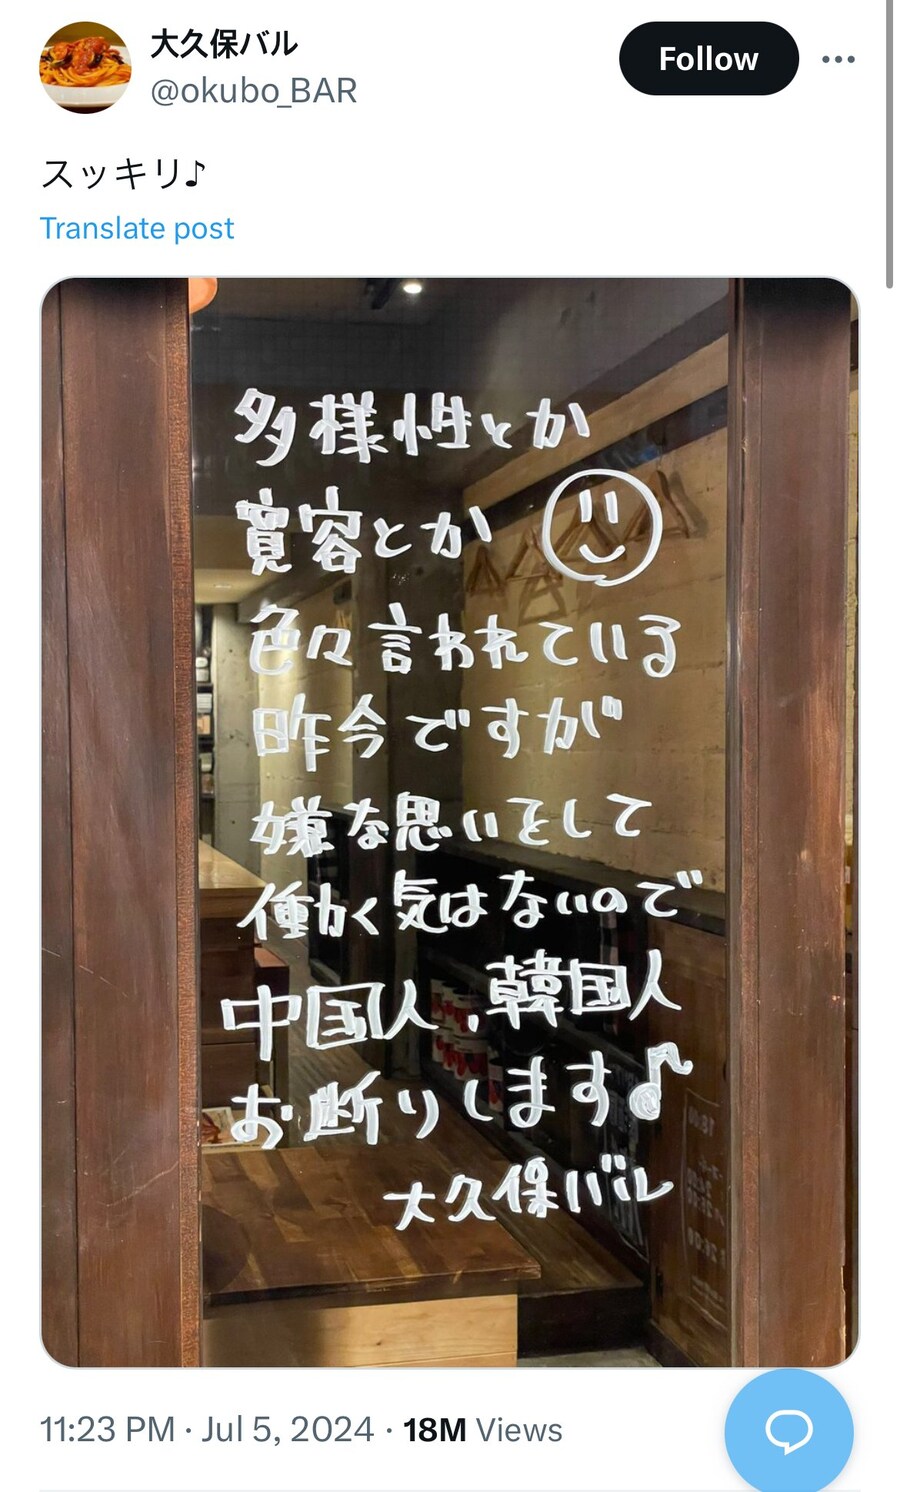 大久保バル
@okubo_BAR
Follow
スッキリ♪
Translate post
多様性とか
寛容とか
色々言われている
昨今ですが
嫌な思いをして
働く気はないので
中国人、韓国人
お断りします♪
大久保バル
11:23 PM · Jul 5, 2024 · 18M Views